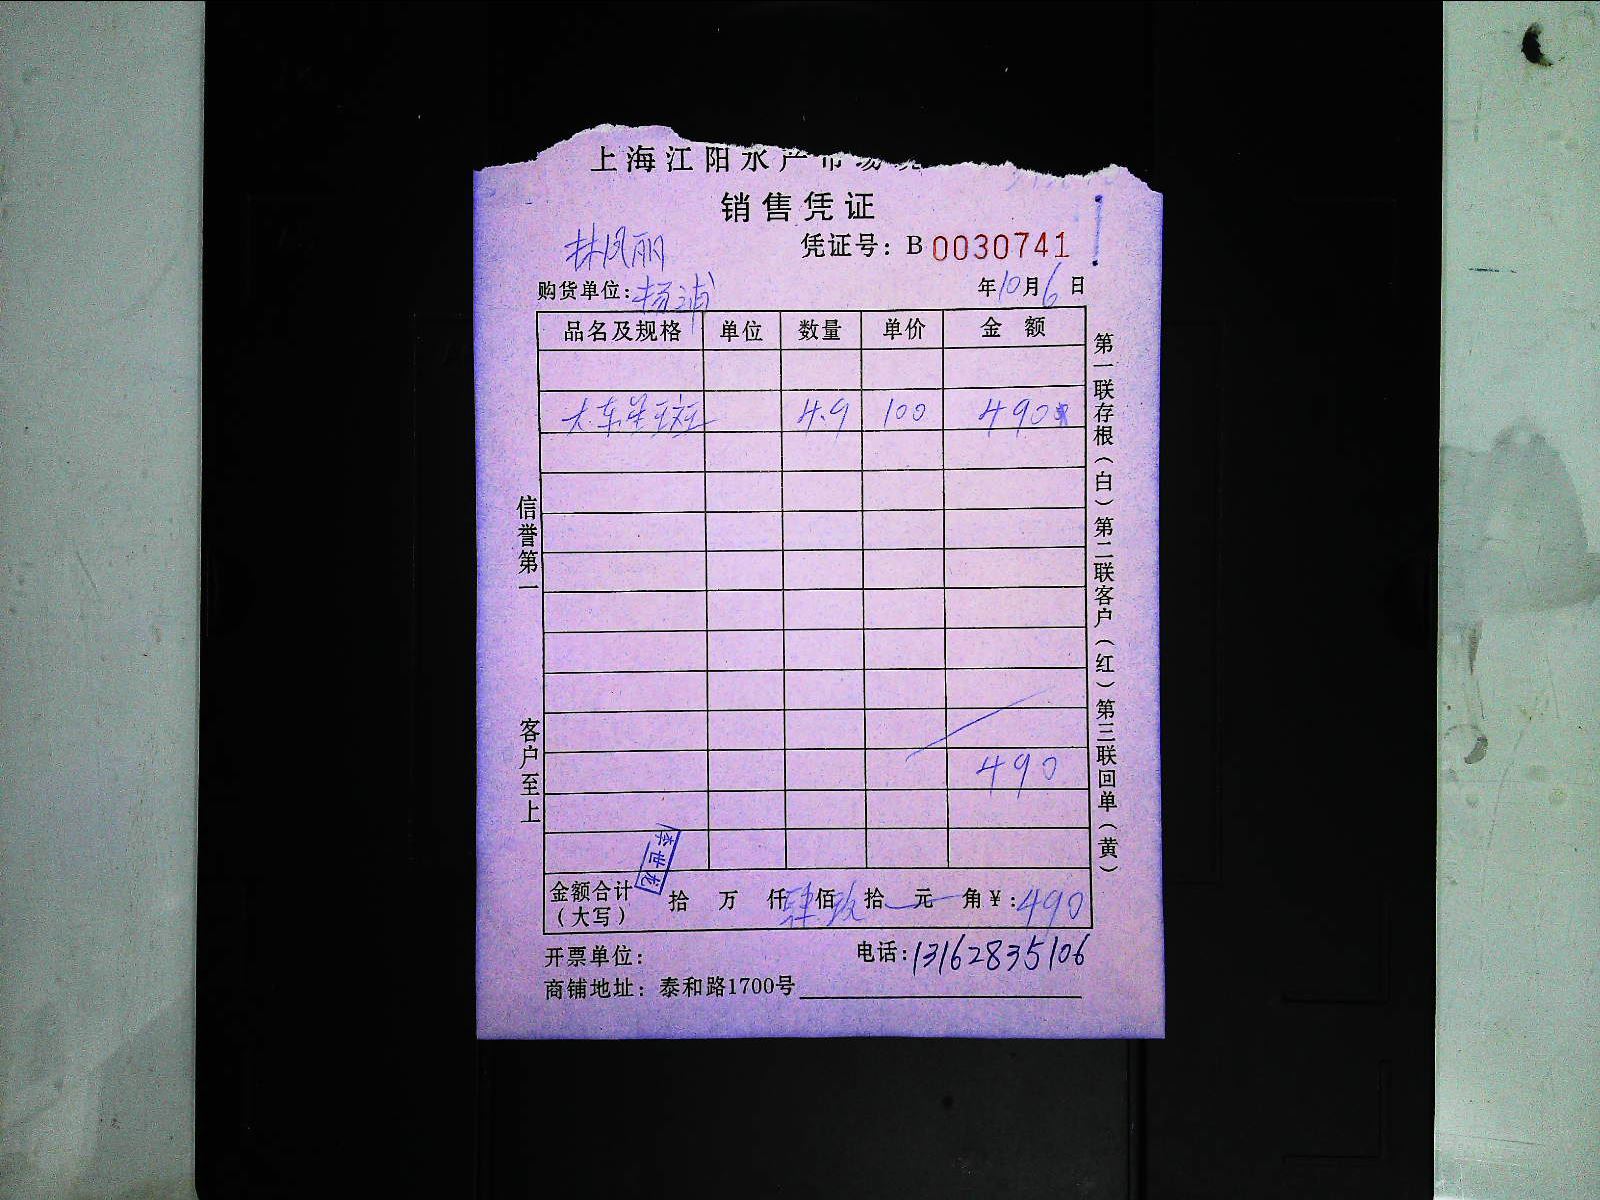 上海江阳水产市场
销售凭证
林凤丽
凭证号：B 0030741
购货单位：杨浦
年10月6日
品名及规格 单位 数量 单价 金 额
大东星斑 4.9 100 490
490
金额合计（大写） 拾 万 仟肆佰玖拾 元 角￥：490
李世龙
开票单位： 电话：13162835106
商铺地址：泰和路1700号
信誉第一 客户至上
第一联存根（白）第二联客户（红）第三联回单（黄）